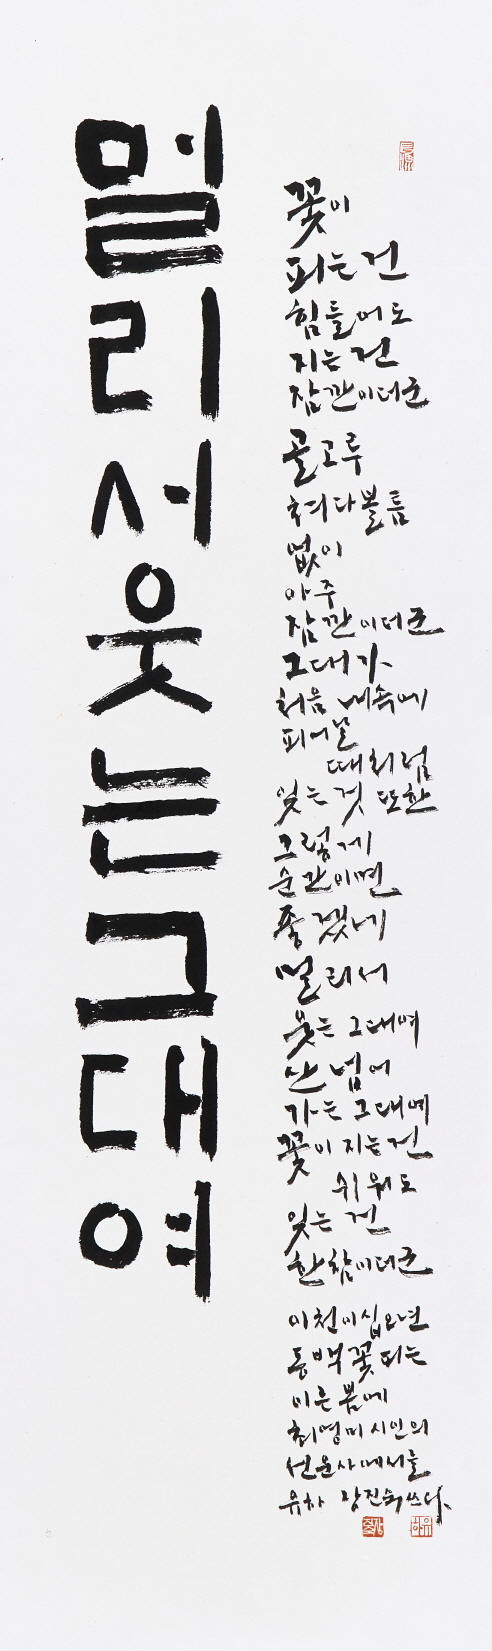 멀리서웃는그대여
꽃이
피는건
힘들어도
지는건
잠깐이더군
골고루
쳐다볼틈
없이
아주
잠깐이더군
그대가
처음 내속에
피어날
때처럼
잊는것 또한
그렇게
순간이면
좋겠네
멀리서
웃는 그대여
산 넘어
가는 그대여
꽃이 지는건
쉬워도
잊는 건
한참이더군
이천이십오년
동백꽃피는
이른 봄에
최영미 시인의
선운사에서를
유하 장진숙 쓰다